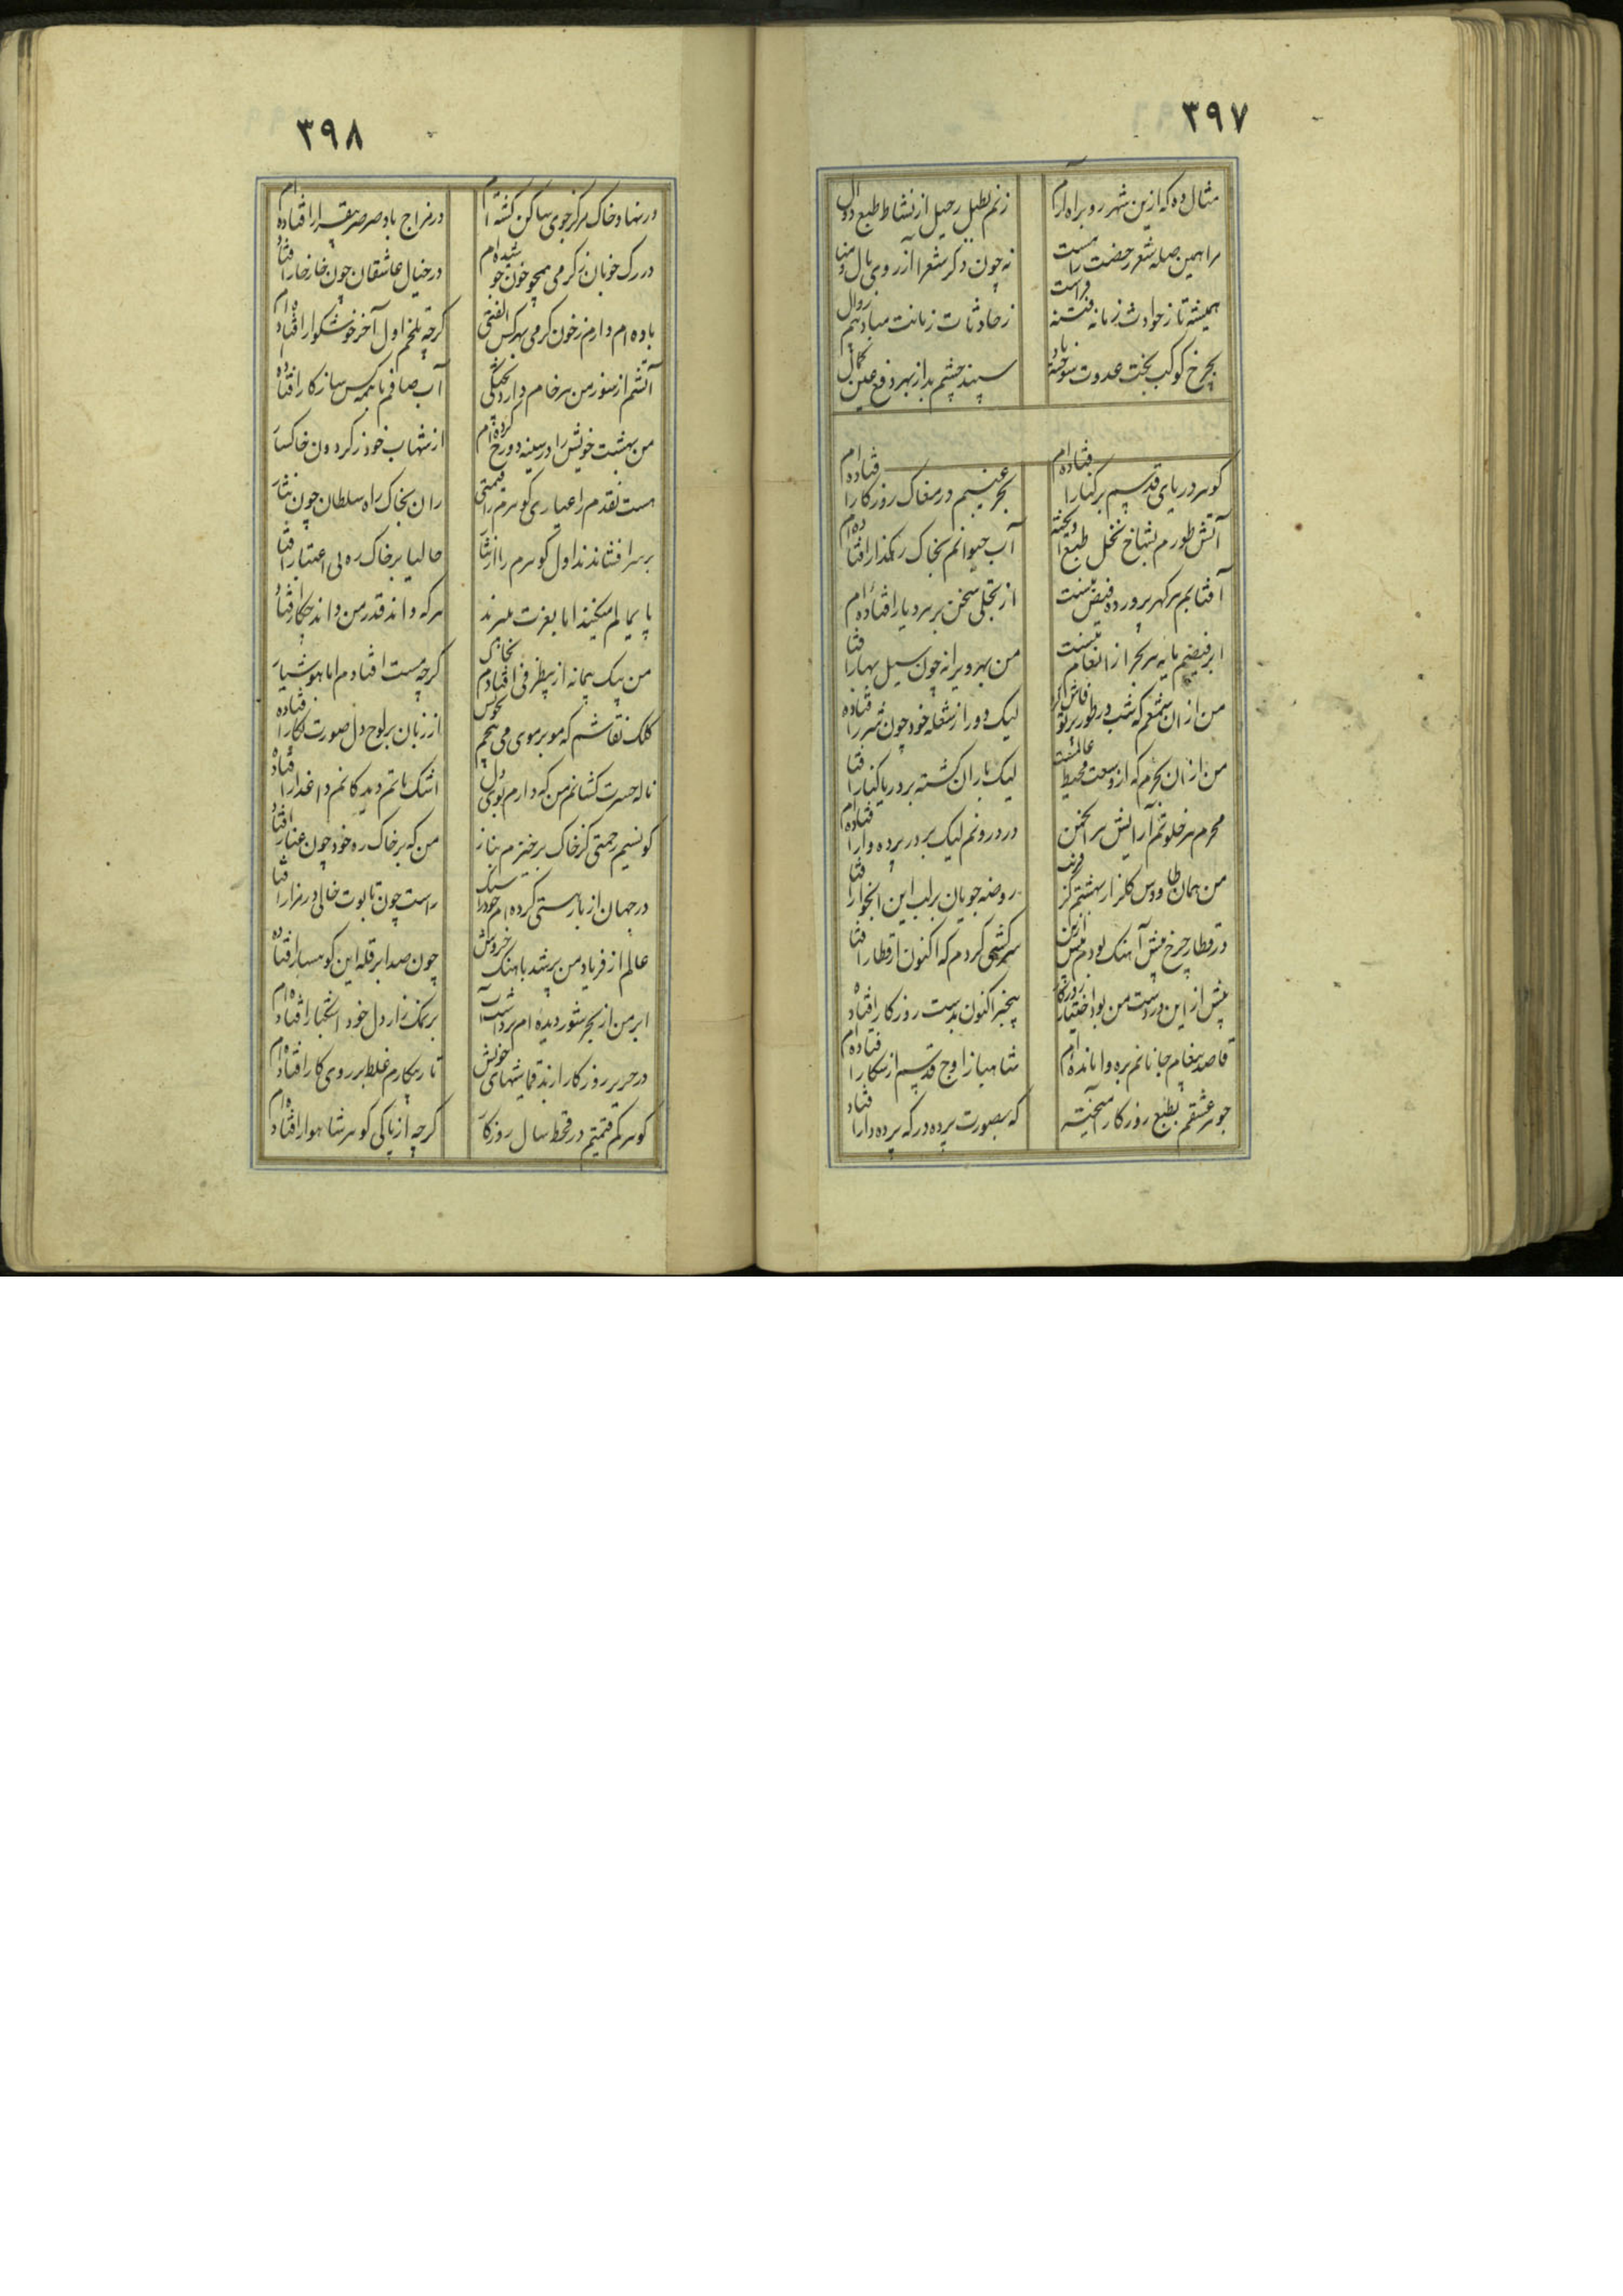 ۳۹۷
مثال ده که ازین شهر رو براه آرم
زنم بطبل رحیل از نشاط طبع دوال
مرا همین صله شعر رخصت راهست
نه چون دکر شعرا از روی مال و منال
همیشه تا ز حوادث زمانه فتنه
ز حادثات زمانت مباد بیم زوال
بچرخ کوکب بخت عدوت سوخته باد
سپند چشم بد از بهر دفع عین کمال
کوهر دریای قدسم بر کنار افتاده ام
بحر غیبم در مغاک روزکار افتاده ام
آتش طورم بشاخ نخل طبع آویخته
آب حیوانم بخاک رهکذار افتاده ام
آفتابم هر کهر پرورده فیض منست
از تجلی سخن بر هر دیار افتاده ام
ابر فیضم مایه هر بحر از انعام منست
من بهر ویرانه چون سیل بهار افتا
من از ان شمعم که شب در طور پرتو فاش کرد
لیک دور از شعله خود چون شرار افتاده
من از ان بحرم که از وسعت محیط عالمست
لیک باران کشته بر دریا کنار افتا
محرم هر خلوتم آرایش هر انجمن
در درونم لیک بر در پرده وار افتاده ام
من همان طاووس کلزار بهشتم کز
روضه جویان بر لب این افتا
در قطار چرخ پیش آهنک بودم پیش ازین
سرکشی کردم که اکنون از قطار افتا
پیش از این در دست من بود اختیار روزکار
بیخبر اکنون بدست روزکار افتاده
قاصد پیغام جانانم بره وا مانده ام
شاهباز اوج قدسم از شکار افتاده ام
جوهر عشقم بطبع روزکار آمیخته
که بصورت پرده در که پرده دار افتاد
۳۹۸
در نهاد خاک مرکز جوی ساکن کشته ام
در مزاج باد صرصر بیقرار افتاده ام
در رک خوبان ز کرمی همچو خون جوشیده ام
در خیال عاشقان چون خار خار افتاد
باده ام دارم ز خون کرمی بهر کس الفتی
کرچه تلخم اول آخر خوشکوار افتاده ام
آتشم از سوز من هر خام دارد پختکی
آب صافم با همه کس سازکار افتاده
من بهشت خویش را در سینه دوزخ کرده ام
از شهاب خود ز کردون خاکسار
هست نقدم را عیاری کوهرم را قیمتی
زان بخاک راه سلطان چون نثار
بر سر افشاندند اول کوهرم را از نثار
حالیا بر خاک ره بی اعتبار افتا
پایمالم میکنند اما بعزت میبرند
هر که داند قدر من داند چکار افتاد
من بیک پیمانه از بیظرفی افتادم بخاک
کرچه مست افتادم اما هوشیار
کلک نقاشم که مو بر موی می پیچم
از زبان بر لوح دل صورت نکار افتاده
ناله حسرت کشانم من که دارم بوی دل
اشک ماتم دیدکانم داغدار افتاده
کو نسیم رحمتی کز خاک برخیزم بناز
من که بر خاک ره خود چون غبار افتاد
در جهان از بار هستی کرده ام خود را سبک
راست چون تابوت خالی در مزار افتا
عالم از فریاد من پر شد باهنک خروش
چون صدا بر قله این کوهسار افتاده
ابر من از بحر شور دیده ام برداشت آب
بر نمک زار دل خود اشکبار افتاده ام
در حریر روزکار ارند قماشهای خویش
تار بیکارم غلط بر روی کار افتاده ام
کوهر کم قیمتم در قحط سال روزکار
کرچه از پاکی کوهر شاهوار افتاده ام